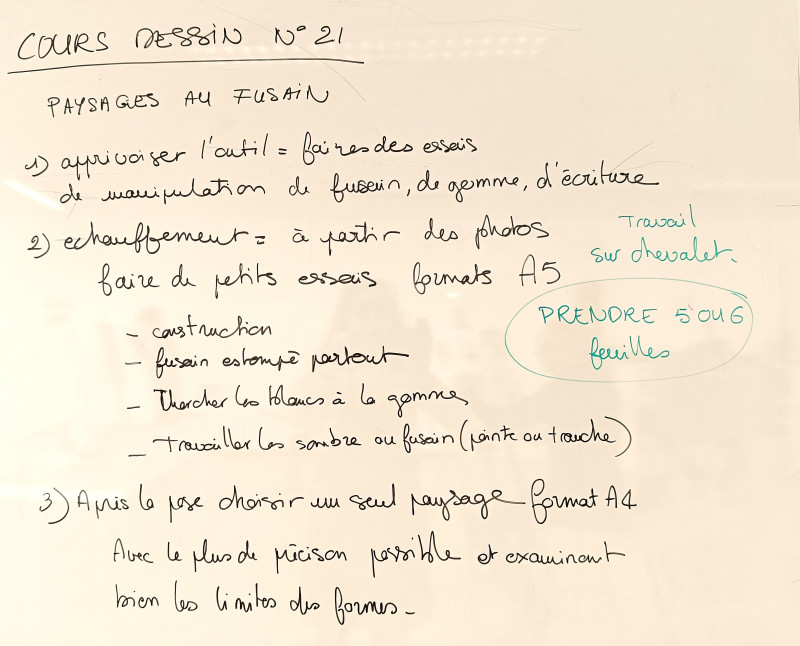 COURS DESSIN N° 21
PAYSAGES AU FUSAIN
1) apprivoiser l'outil = faires des essais
de manipulation de fusain, de gomme, d'écriture
2) echauffement = à partir des photos
faire de petits essais formats A5
Travail
sur chevalet.
PRENDRE 5 OU 6
feuilles
- construction
- fusain estompé partout
- Chercher les blancs à la gomme
- Travailler les sombre au fusain (pointe ou tranche)
3) Après la pose choisir un seul paysage format A4
Avec le plus de précison possible et examinant
bien les limites des formes -